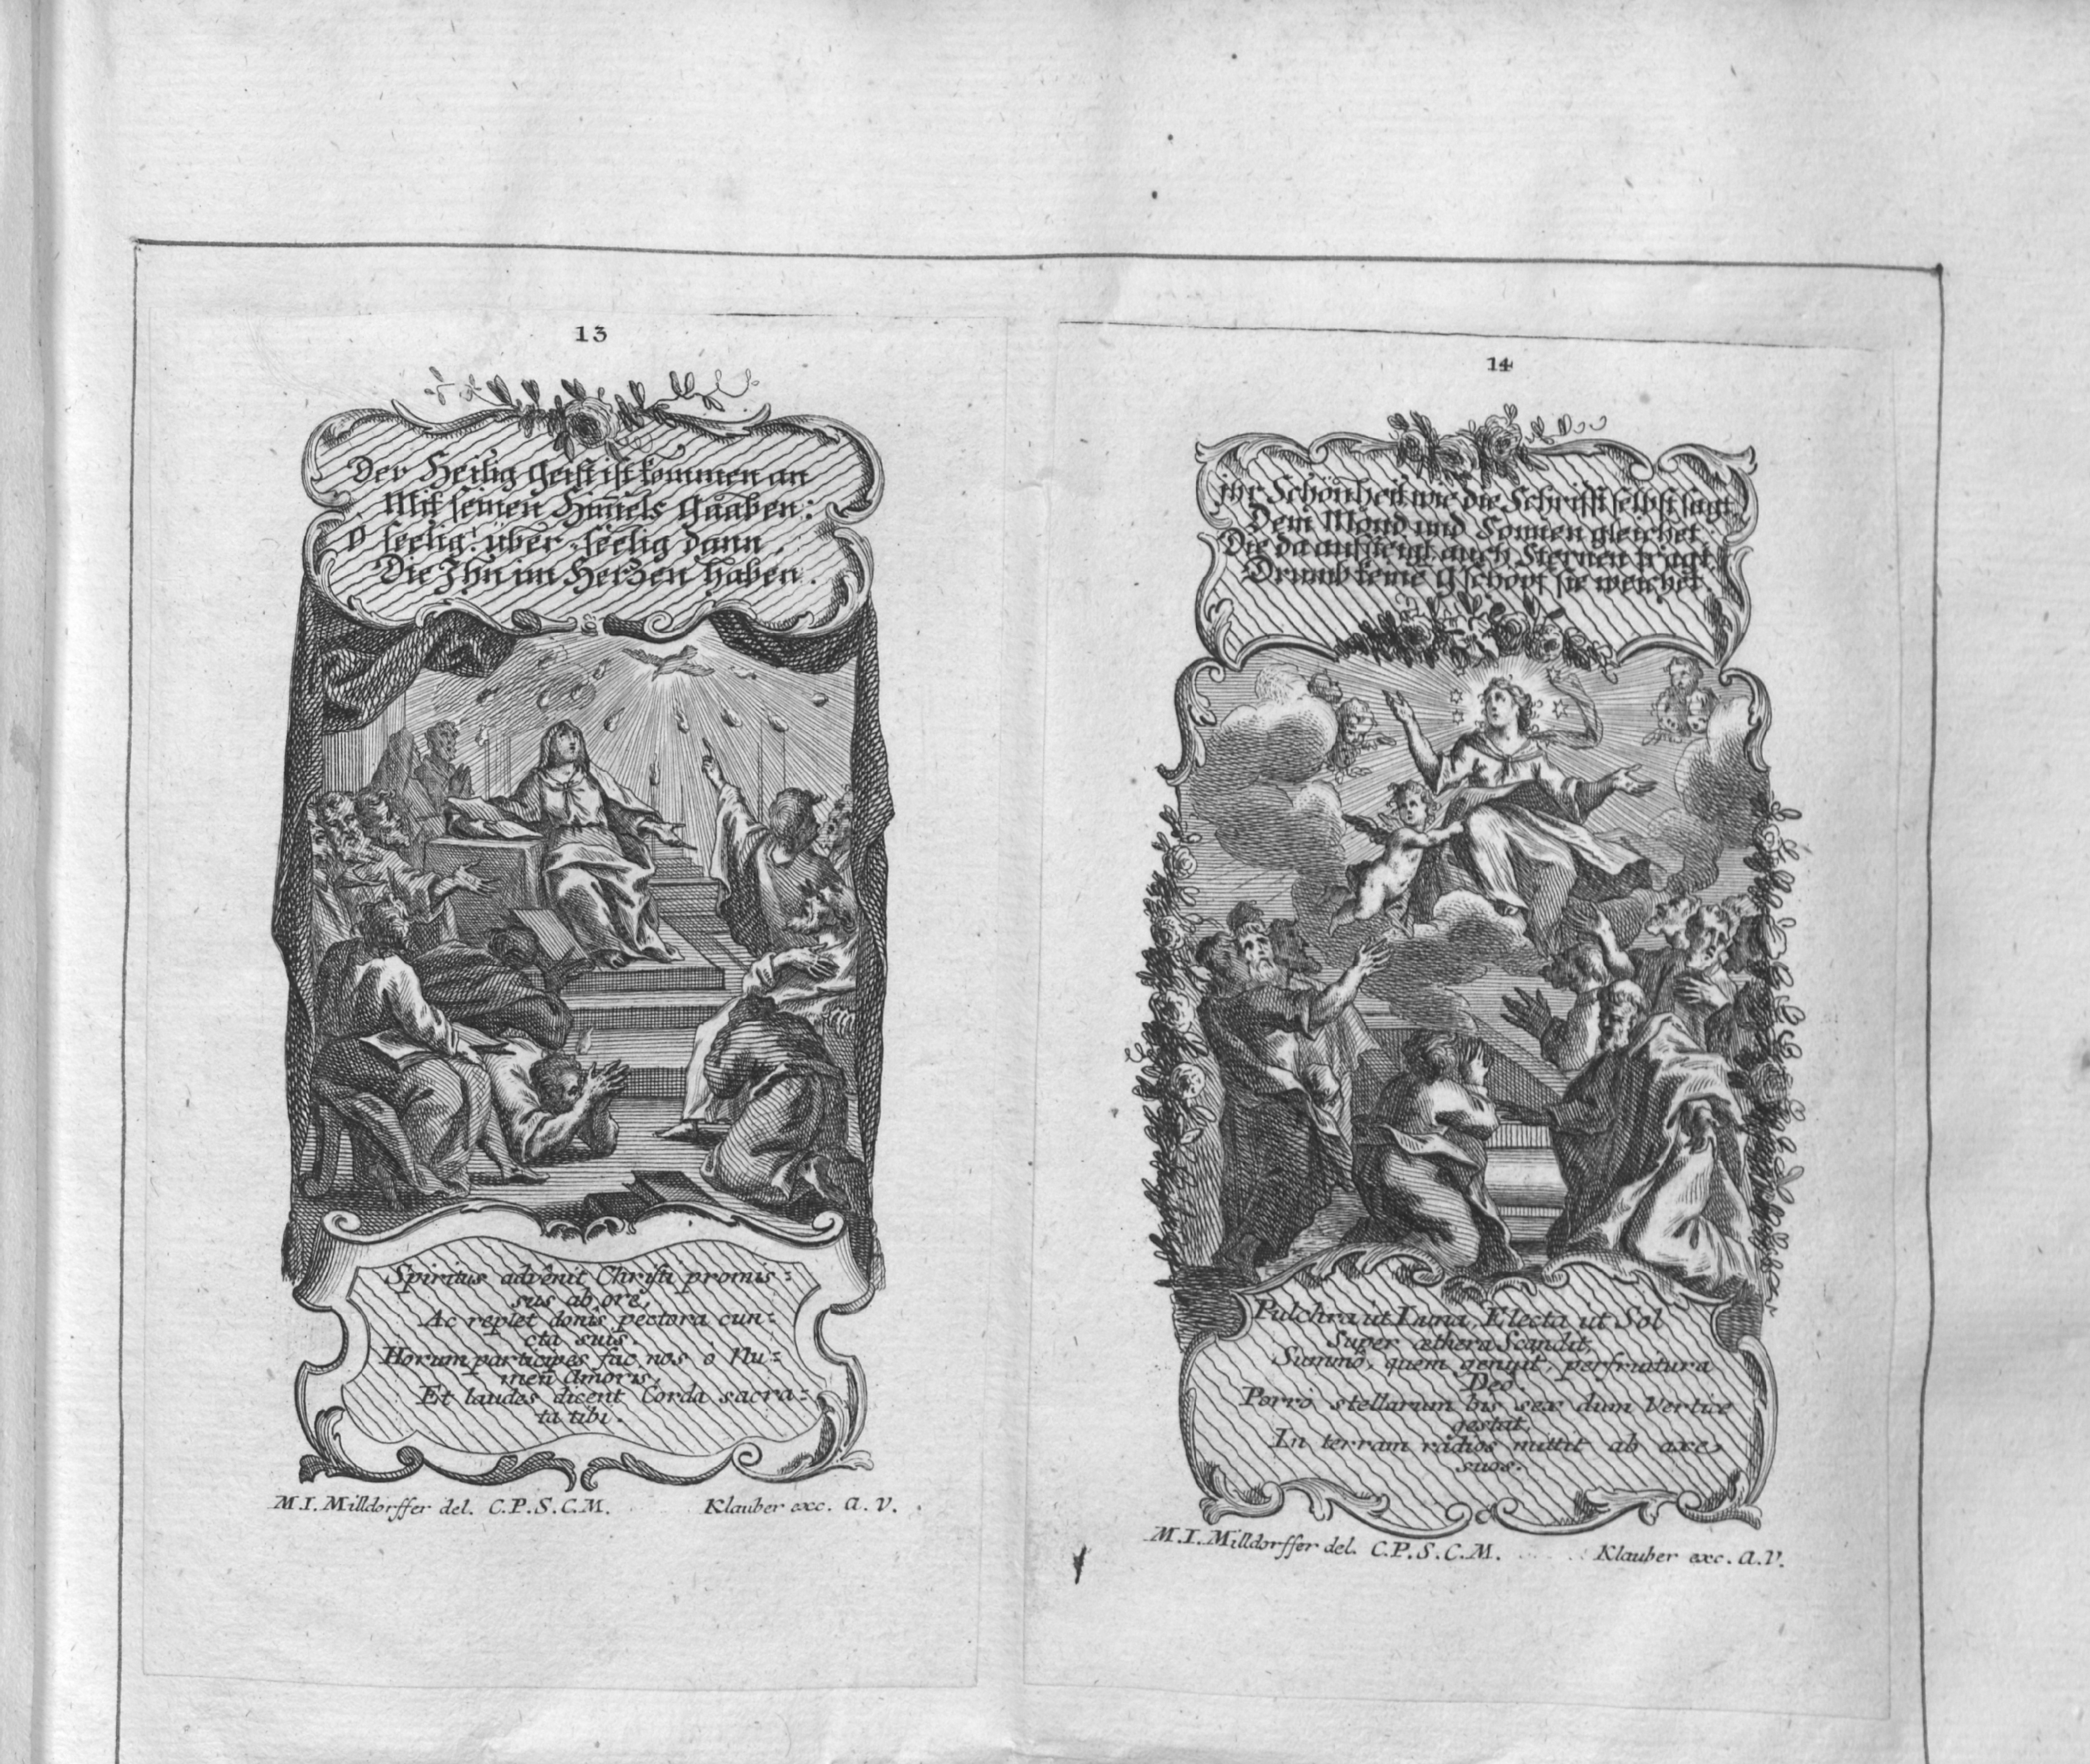 13
Der Heilig Geist ist kommen an
Mit seinen Him̄els Gaaben:
O seelig! über-seelig dann,
Die Ihn im Hertzen haben.
Spiritus advênit Christi promis:
sus ab ore,
Ac replet donis pectora cun:
cta suis.
Horum participes fac nos ô Nu:
men Amoris,
Et laudes dicent Corda sacra:
ta tibi.
M.I. Milldorffer del. C.P.S.C.M.
Klauber exc. A.V.
14
ihr Schönheit wie die Schrifft selbst sagt
Dem Mond und Sonnen gleichet.
Die da aufsteigt auch Sternen tragt
Drumb keine gschöpf sie weichet.
Pulchra ut Luna, Electa ut Sol
Super æthera Scandit,
Summô, quem genuit, perfruitura
Deo.
Porrò stellarum bis sex dum Vertice
gestat,
In terram radios mittit ab axe
suos.
M.I. Milldorffer del. C.P.S.C.M.
Klauber exc. A.V.